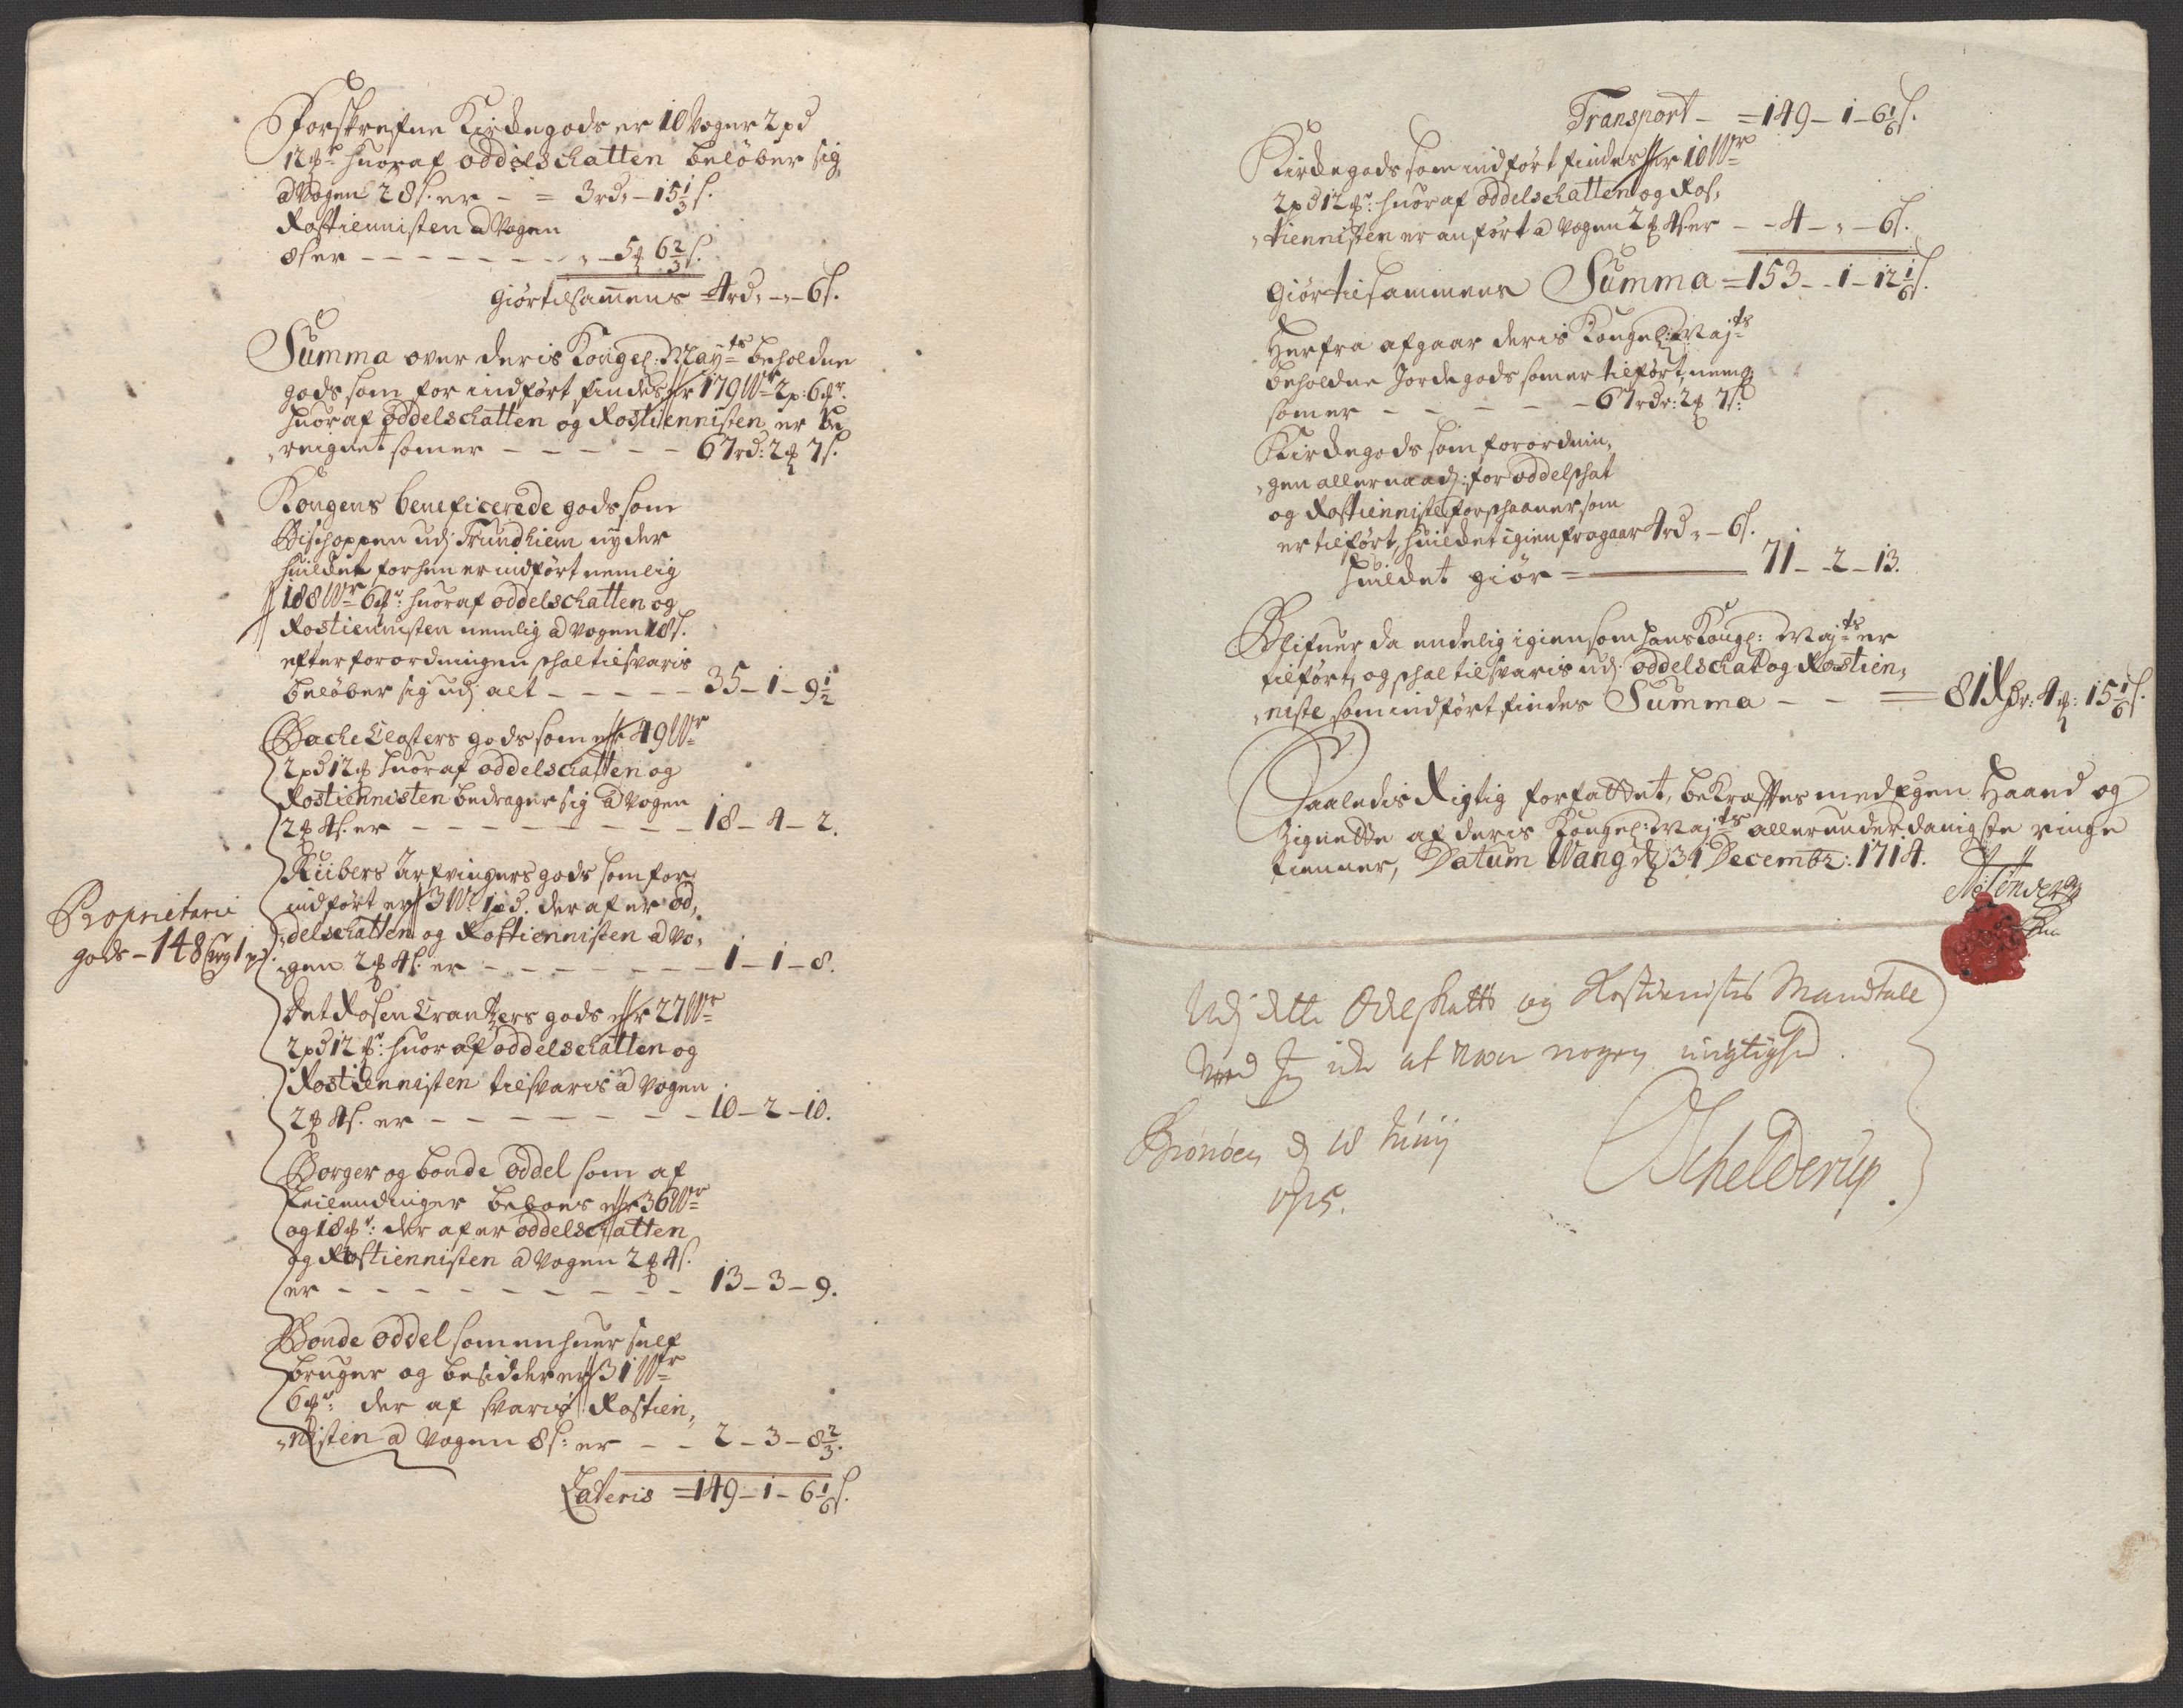 Forskrefne Kirkegods er 10 Voger 2 pd
12 ℔r huoraf oddelschatten beløber sig
a Vogen 28 s. er - = 3 rd. - 15 1/3 s.
Rostiennisten a Vogen
8 s er - - - - - - - „ - 5 ℔ 6 2/3 s.
Giør tilsammens = 4 rd. - „ - 6 s.
Summa over deris Kongel: May:ts beholdne
gods som for indført findes er 179 Wr 2 p: 6 ℔r.
huoraf oddelschatten og Rostiennisten er be
„reignet som er - - - - - 67 rd: 2 ℔ 7 s.
Kongens beneficerede gods som
Bischoppen udj Trundhiem nyder
huilket forhen er indført nemlig
188 Wr 6 ℔r: huoraf oddelschatten og
Rostiennisten nemlig a Vogen 18 s.
efter forordningen schal tilsvaris
beløber sig udj alt - - - - - 35 - 1 - 9 1/2
Bache Closters gods som er 49 Wr
2 pd 12 ℔ huoraf oddelschatten og
Rostiennisten bedrager sig a Vogen
2 ℔ 4 s. er - - - - - - - - 18 - 4 - 2.
Kuibers Arfvingers gods som for
indført er 3 W: 1 pd. der af er od,
„delschatten og Rostiennisten a Vo,
„gen 2 ℔ 4 s. er - - - - - - - 1 - 1 - 8.
Proprietarie
gods - 148 Wog 1 pd.
Det Rosen Crantzers gods er 27 Wr
2 pd 12 ℔r: huoraf oddelschatten og
Rostiennisten tilsvaris a Vogen
2 ℔ 4 s. er - - - - - - - 10 - 2 - 10.
Borger og bonde oddel som af
Leilendinger beboes er 36 Wr
og 18 ℔r: der af er oddelschatten
og Rostiennisten a Vogen 2 ℔ 4 s.
er - - - - - - - - - 13 - 3 - 9.
Bonde oddel som en huer self
bruger og besidder er 31 Wr
6 ℔r: der af svaris Rostien,
„nisten a Vogen 8 s: er - - 2 - 3 - 8 2/3.
Lateris = 149 - 1 - 6 1/6 s.
Transport - = 149 - 1 - 6 1/6 s.
Kirkegods som indført findes er 10 Wr
2 pd 12 ℔r: huoraf oddelschatten og Ros,
„tiennisten er anført a Vogen 2 ℔ 4 s er - - 4 - „ - 6 s.
Giør tilsammens Summa = 153 - 1 - 12 1/6 s.
Herfra afgaar deris Kongel: Maj:ts
beholdne Jordegods som er tilført, neml
som er - - - - - 67 rdr: 2 ℔ 7 s:
Kirkegods som forordnin,
„gen allernaad: for oddelschat
og Rostienniste forschaaner som
er tilført, huilket igien fragaar 4 rd „ - 6 s.
huilket giør = 71 - 2 - 13.
Blifuer da endelig igien som hans Kongl: Maj:ts er
tilført, og schal tilsvaris udj oddelschat og Rostien,
„niste som indført findes Summa - - = 81 Rdr: 4 ℔: 15 1/6 s.
Saaledis Rigtig forfattet, bekræftes med Egen Haand og
Zignette af deris Kongel: Maj:ts allerunderdanigste ringe
tienner, Datum Wang d 31 Decembr: 1714.
Udj dette Odelskatts og Rostienistes Mandtall
Veed Jeg icke at være nogen urigtighed.
Brønøen d 18 Junij
1715.
Schelderup.